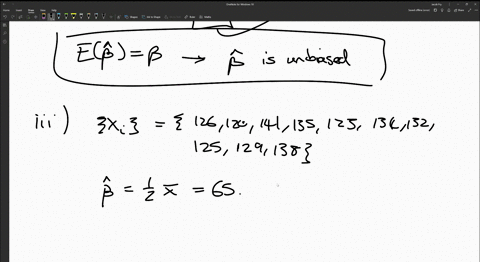 E(β̂) = β → β̂ is unbiased
iii) {xᵢ} = { 126, 141, 135, 132,
125, 129, 138}
β̂ = ½ x̄ = 65.